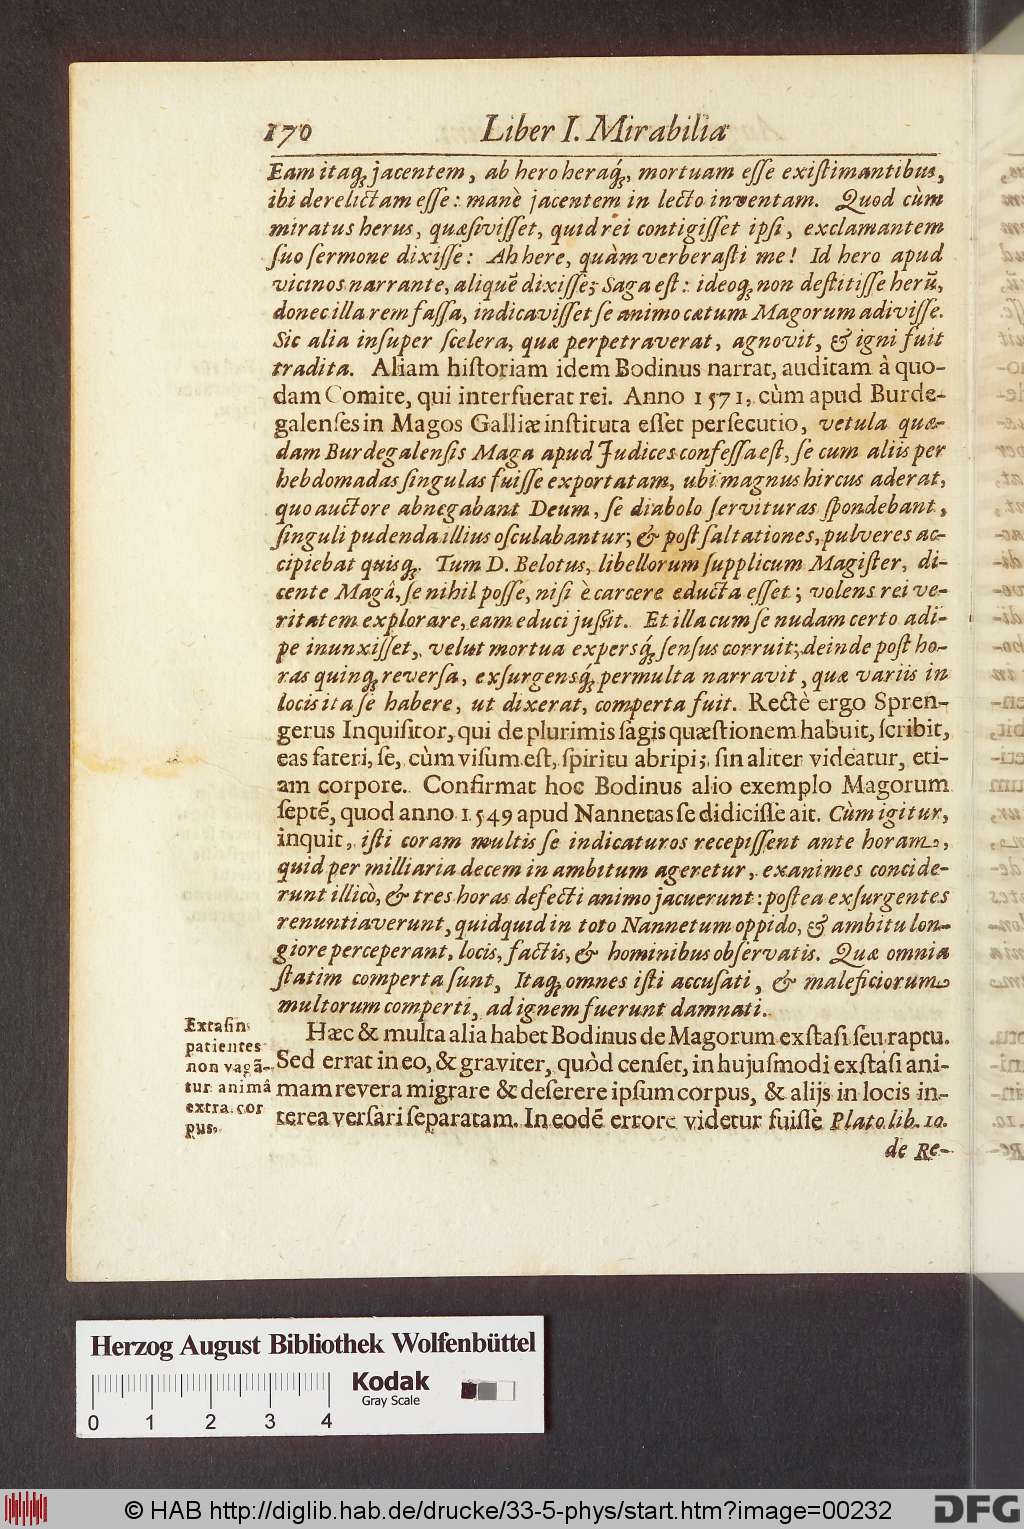 170 Liber I. Mirabiliæ
Eam itaq́; jacentem, ab hero heraq́;, mortuam esse existimantibus,
ibi derelictam esse: manè jacentem in lecto inventam. Quod cùm
miratus herus, quæsivisset, quid rei contigisset ipsi, exclamantem
suo sermone dixisse: Ah here, quàm verberasti me! Id hero apud
vicinos narrante, aliquẽ dixisse; Saga est: ideoq; non destitisse herũ,
donec illa rem fassa, indicavisset se animo cætum Magorum adivisse.
Sic alia insuper scelera, quæ perpetraverat, agnovit, & igni fuit
tradita. Aliam historiam idem Bodinus narrat, auditam à quo-
dam Comite, qui interfuerat rei. Anno 1571, cùm apud Burde-
galenses in Magos Galliæ instituta esset persecutio, vetula quæ-
dam Burdegalensis Maga apud Judices confessa est, se cum aliis per
hebdomadas singulas fuisse exportatam, ubi magnus hircus aderat,
quo auctore abnegabant Deum, se diabolo servituras spondebant,
singuli pudenda illius osculabantur; & post saltationes, pulveres ac-
cipiebat quisq;. Tum D. Belotus, libellorum supplicum Magister, di-
cente Magâ, se nihil posse, nisi è carcere educta esset; volens rei ve-
ritatem explorare, eam educi jussit. Et illa cum se nudam certo adi-
pe inunxisset, velut mortua expersq́; sensus corruit; deinde post ho-
ras quinq; reversa, exsurgensq́; permulta narravit, quæ variis in
locis ita se habere, ut dixerat, comperta fuit. Rectè ergo Spren-
gerus Inquisitor, qui de plurimis sagis quæstionem habuit, scribit,
eas fateri, se, cùm visum est, spiritu abripi; sin aliter videatur, eti-
am corpore. Confirmat hoc Bodinus alio exemplo Magorum
septẽ, quod anno 1549 apud Nannetas se didicisse ait. Cùm igitur,
inquit, isti coram multis se indicaturos recepissent ante horam,
quid per milliaria decem in ambitum ageretur, exanimes concide-
runt illicò, & tres horas defecti animo jacuerunt: postea exsurgentes
renuntiaverunt, quidquid in toto Nannetum oppido, & ambitu lon-
giore perceperant, locis, factis, & hominibus observatis. Quæ omnia
statim comperta sunt, Itaq; omnes isti accusati, & maleficiorum
multorum comperti, ad ignem fuerunt damnati.
Extasin
patientes
non vagã-
tur animâ
extra cor
pus.
Hæc & multa alia habet Bodinus de Magorum exstasi seu raptu.
Sed errat in eo, & graviter, quòd censet, in hujusmodi exstasi ani-
mam revera migrare & deserere ipsum corpus, & alijs in locis in-
terea versari separatam. In eodẽ errore videtur fuisse Plato lib. 10.
de Re-
Herzog August Bibliothek Wolfenbüttel
Kodak
Gray Scale
0 1 2 3 4
© HAB http://diglib.hab.de/drucke/33-5-phys/start.htm?image=00232
DFG